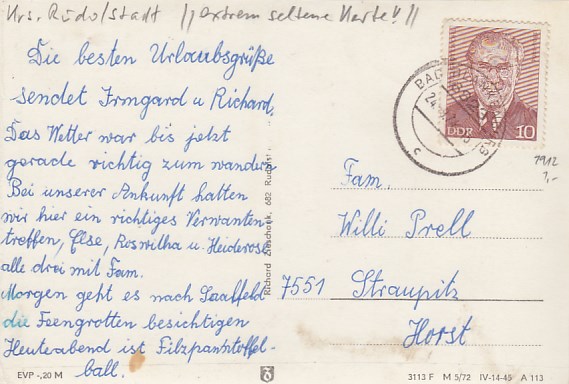 Krs. Rudolstadt !! extrem seltene Karte !! !!
Die besten Urlaubsgrüße
sendet Irmgard u. Richard.
Das Wetter war bis jetzt
gerade richtig zum wandern
Bei unserer Ankunft hatten
wir hier ein richtiges Verwanten-
treffen, Else, Roswitha u. Heiderose
alle drei mit Fam.
Morgen geht es nach Saalfeld
die Feengrotten besichtigen
Heuteabend ist Filzpantoffel-
ball.
EVP -,20 M
Richard Zieschank, 682 Rudolst.
BAD
DDR 10
7912
1,-
Fam.
Willi Prell
7551 Straupitz
Horst
3113 F M 5/72 IV-14-45 A 113